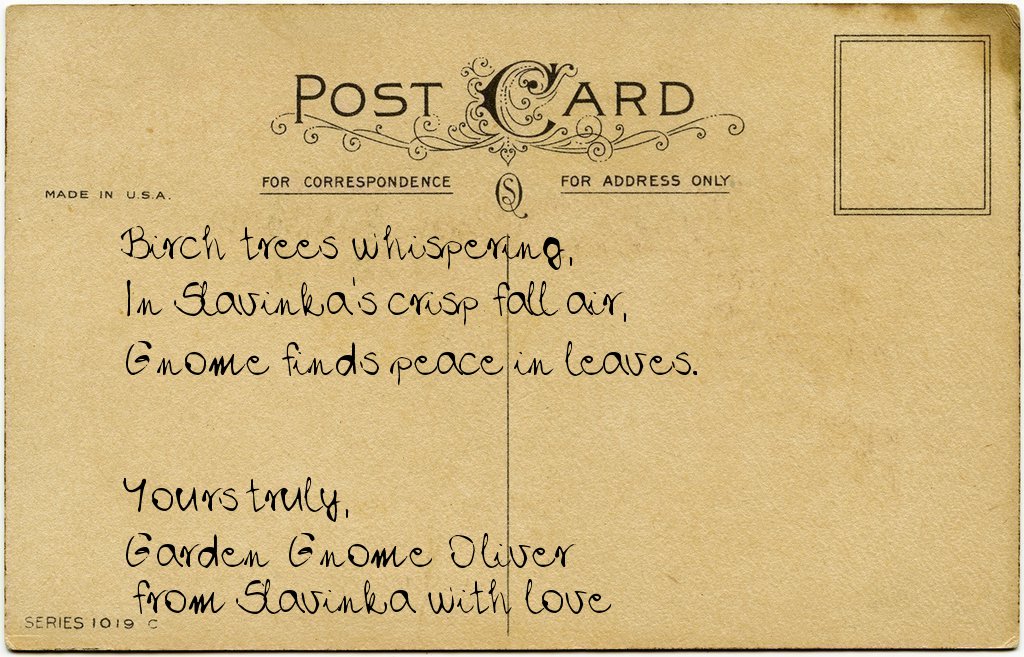 POST CARD
FOR CORRESPONDENCE
FOR ADDRESS ONLY
MADE IN U.S.A.
Birch trees whispering,
In Slavinka's crisp fall air,
Gnome finds peace in leaves.
Yours truly,
Garden Gnome Oliver
from Slavinka with love
SERIES 1019 C